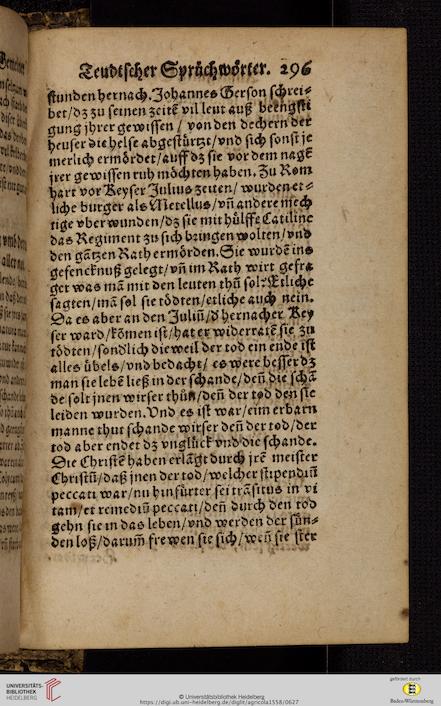 Teudtscher Sprüchwörter. 296
stunden hernach. Johannes Gerson schrei-
bet/dz zu seinen zeitē vil leut auß beengsti
gung jhrer gewissen / von den dechern der
heuser die helse abgestürtzt/vnd sich sonst je
merlich ermördet/auff dz sie vor dem nagē
jrer gewissen ruh möchten haben. Zu Rom
hart vor Keyser Julius zeiten/ wurden et-
liche burger als Metellus/vñ andere mech
tige vberwunden/dz sie mit hülffe Catiline
das Regiment zu sich bringen wolten/vnd
den gātzen Rath ermörden. Sie wurdē ins
gefencknuß gelegt/vñ im Rath wirt gefra
get was mā mit den leuten thū sol: Etliche
sagten/mā sol sie tödten/etliche auch nein.
Da es aber an den Juliū/d hernacher Key
ser ward/kōmen ist/hat er widerratē sie zu
tödten/sondlich die weil der tod ein ende ist
alles übels/vnd bedacht/ es were besser dz
man sie lebē ließ in der schande/deñ die schā
de solt jnen wirser thūn/deñ der tod den sie
leiden wurden. Vnd es ist war/eim erbarn
manne thut schande wirser deñ der tod/der
tod aber endet dz vnglück vnd die schande.
Die Christē haben erlāgt durch jrē meister
Christū/daß jnen der tod/welcher stipendiū
peccati war/nu hinfürter sei trāsitus in vi
tam/et remediū peccati/deñ durch den tod
gehn sie in das leben/vnd werden der sün-
den loß/darum̄ frewen sie sich/weñ sie ster
UNIVERSITÄTS-
BIBLIOTHEK
HEIDELBERG
© Universitätsbibliothek Heidelberg
https://digi.ub.uni-heidelberg.de/diglit/agricola1558/0627
gefördert durch
Baden-Württemberg